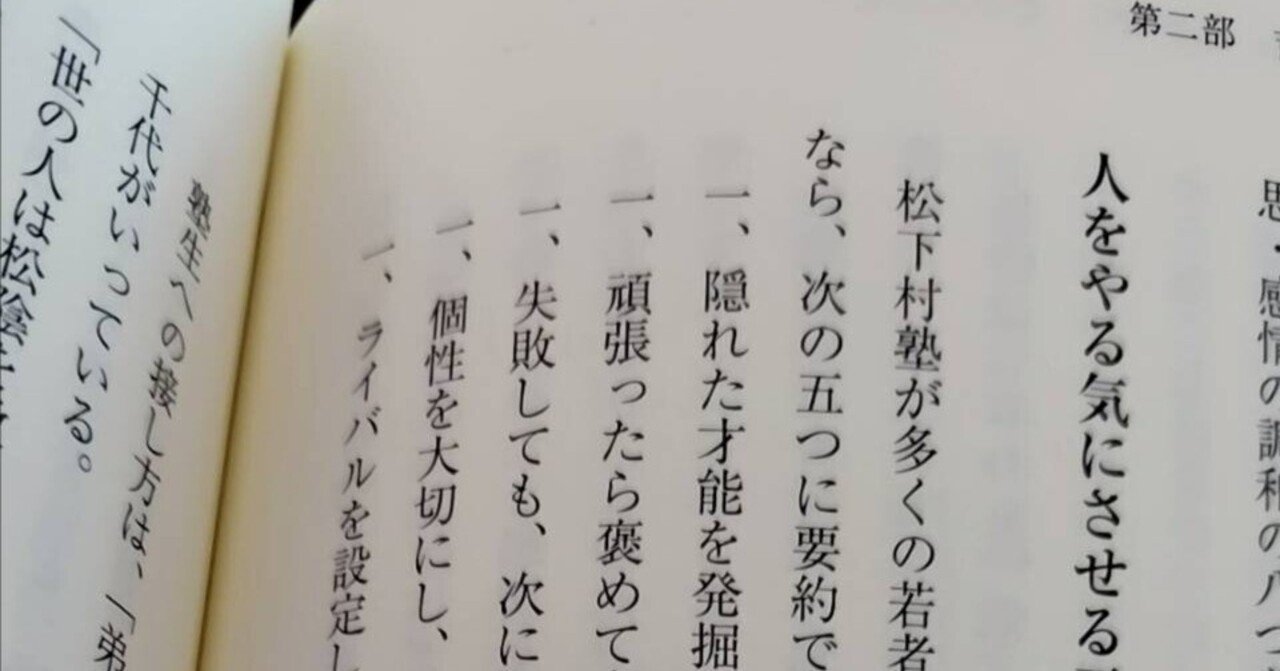 第二部
思・感情の調和の八つ
人をやる気にさせる
松下村塾が多くの若者
なら、次の五つに要約で
一、隠れた才能を発掘
一、頑張ったら褒めて
一、失敗しても、次に
一、個性を大切にし、
一、ライバルを設定し
塾生への接し方は、「弟
千代がいっている。
「世の人は松陰